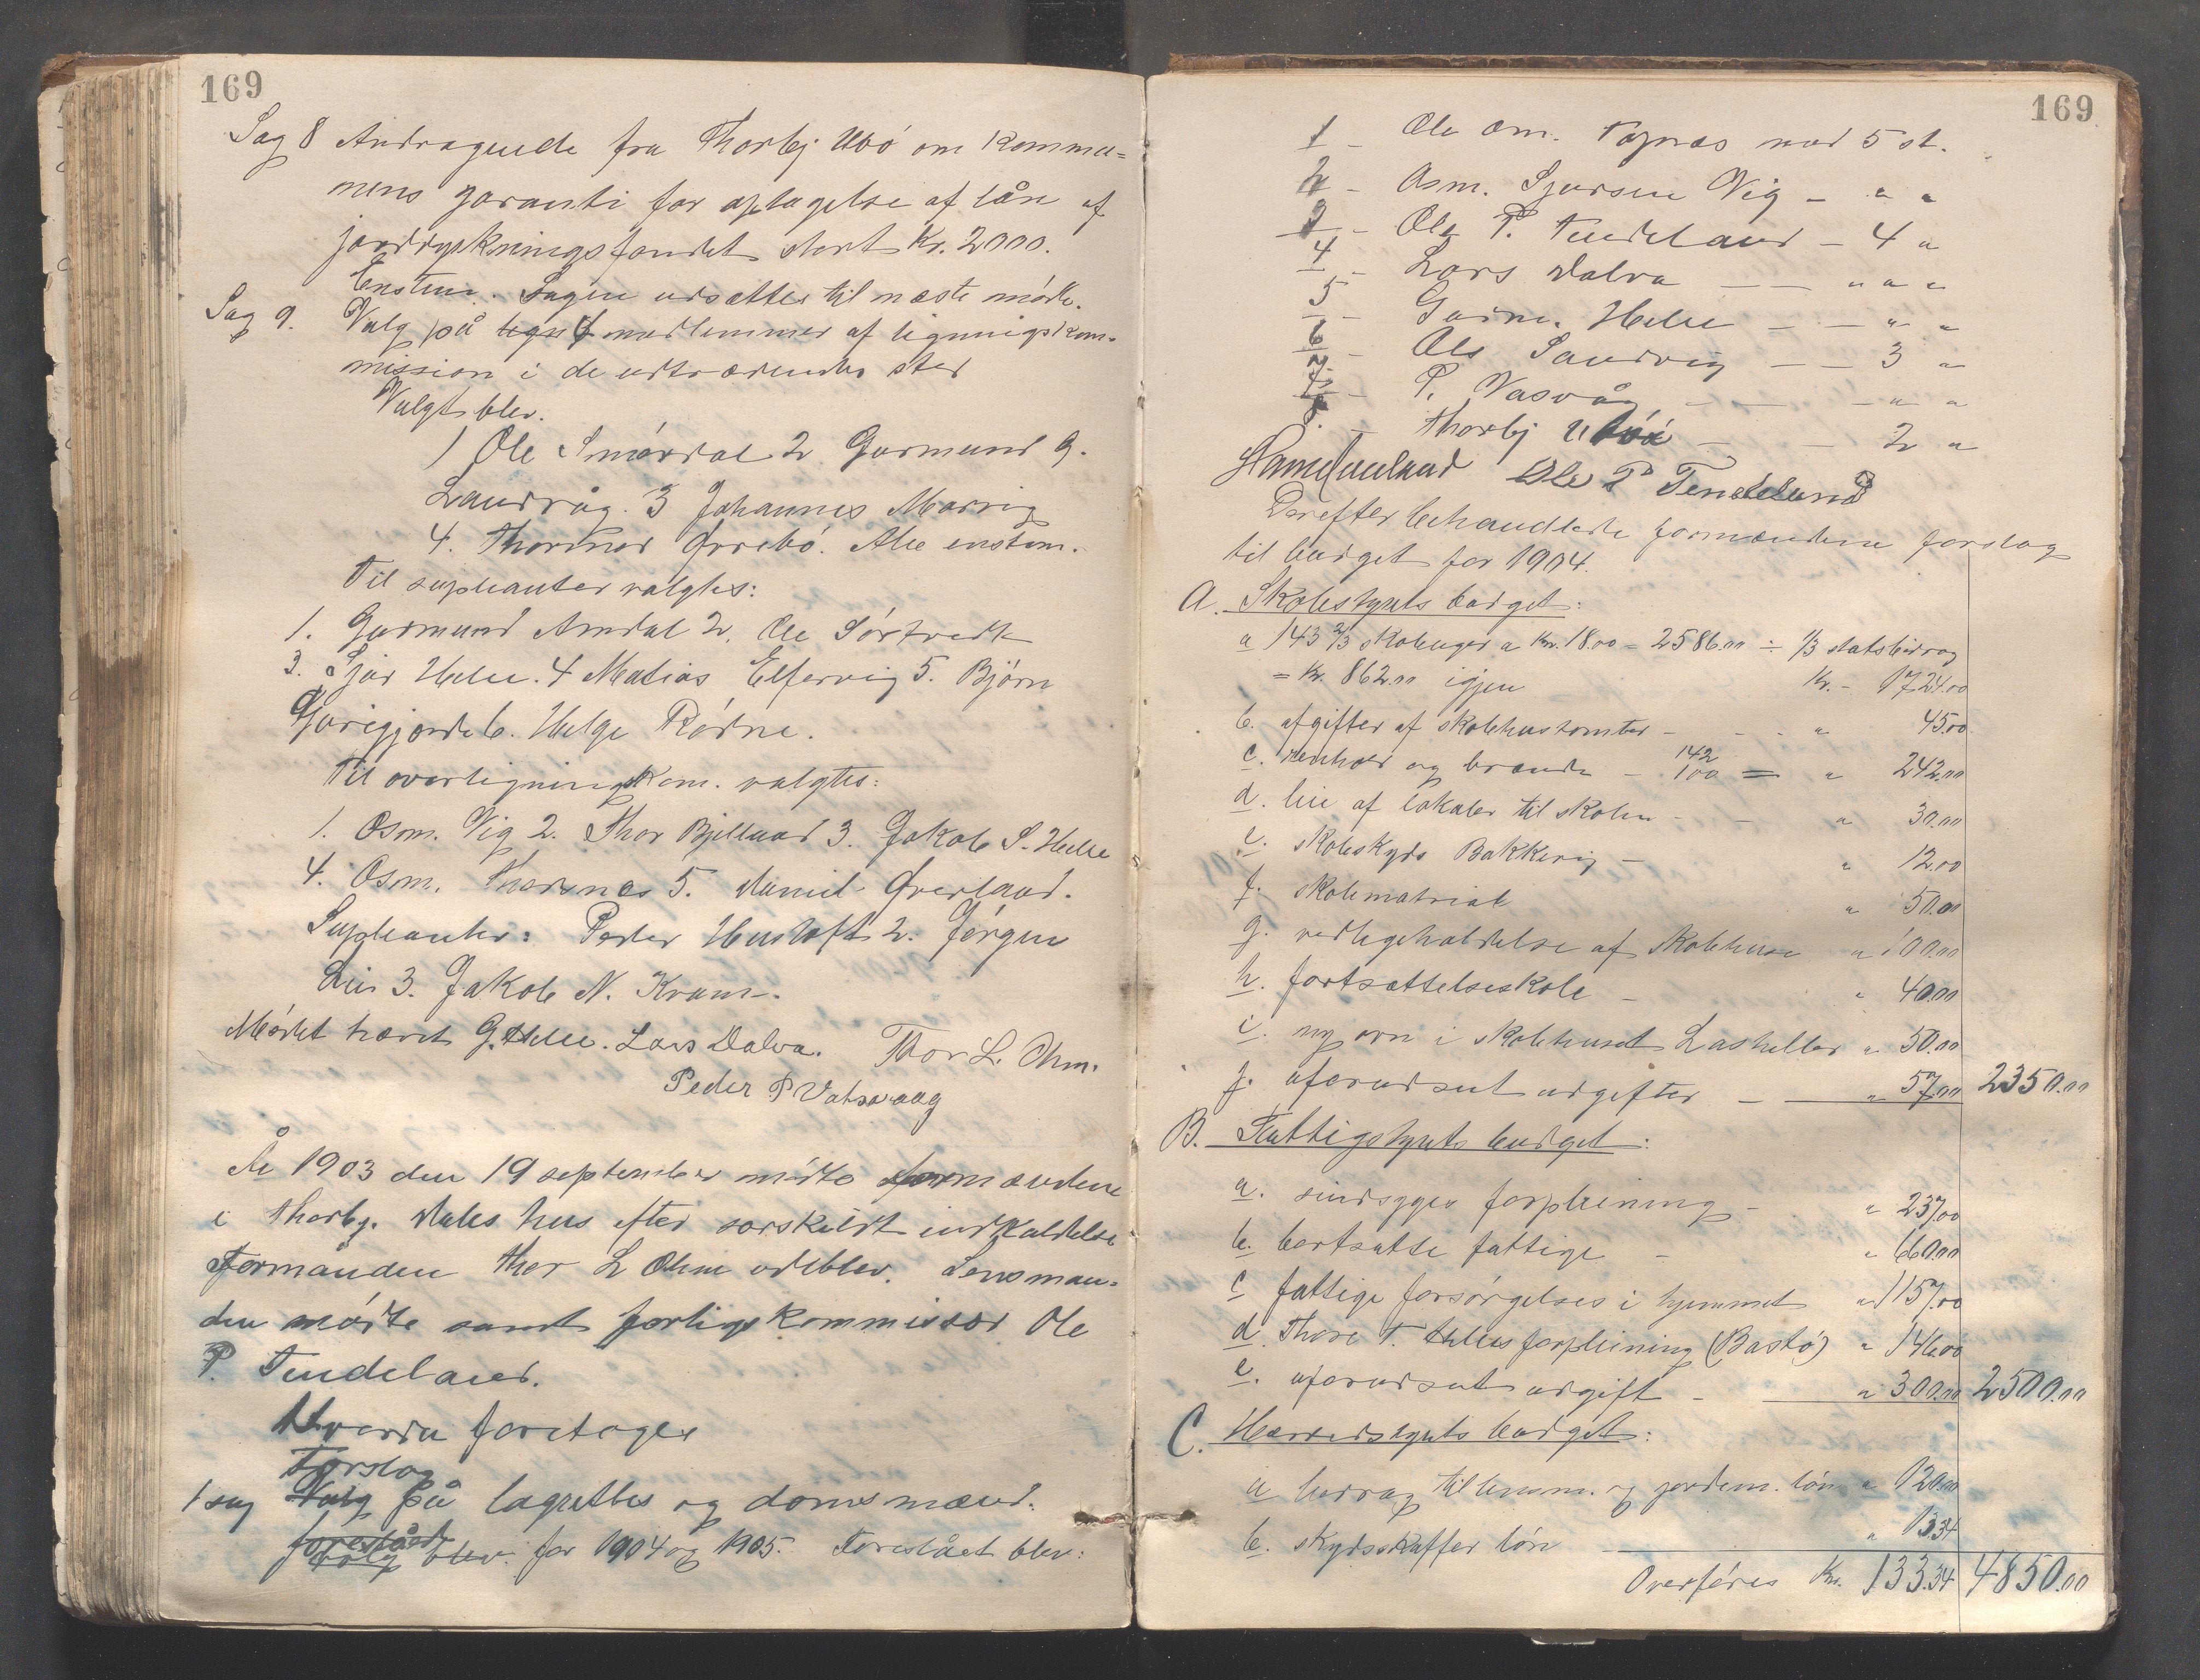 169
Sag 8 Andragende fra Thorbj. Utbö om kommu=
nens garanti for optagelse af lån af
jorddyrkningsfondet stort Kr. 2000.
Enstem. Sagen udsættes til næste möde.
Sag 9. Valg på 4 medlemmer af ligningskom-
mission i de udtrædendes sted
Valgt blev.
1 Ole Smördal 2 Gurmund G.
Landvåg. 3 Johannes Marvig
4. Thormod Ørrebö. Alle enstem.
Til supleanter valgtes:
1. Gurmund Amdal 2. Ole Sörtvedt
3. Sjur Helle. 4 Matias Elfervig 5. Björn
6. Helge Rödne.
Til overligningskom. valgtes:
1. Osm. Vig 2. Thor Bjelland 3. Jakob S. Helle
4. Osm. Thorsnes 5. Daniel Øverland.
Supleanter: Peder Hustoft 2. Jörgen
Lie 3. Jakob N. Kvam.
Mödet hævet G. Helle. Lars Dalva. Thor L. Ohm.
Peder P Vatsvaag
År 1903 den 19 september mödte formændene
i Thorbj. Dales hus efter sorskildt indkaldelse
Formanden Thor L Ohm udeblev. Lensman-
den mödte samt forligskommissær Ole
P. Tendeland.
Hvorda foretoges
Forslag
1 sag Valg på lagrettes og domsmænd.
foreslået
valg blev. for 1904 og 1905. Foreslået blev:
169
1 - Ole Om. Tognæs med 5 st.
2 - Osm. Sjursen Vig - " "
3 - Ole P. Tendeland - 4 "
4 - Lars Dalva - - " " "
5 - Gurm. Helle - - " "
6 - Ols Sandvig - - 3 "
7 - P. Vasvåg - - " "
8. - Thorbj Utbö - - 2 "
Ole P Tendeland
Derefter behandlede formændene forslag
til budget for 1904.
A. Skolestyrets budget:
a 143 2/3 skoleuger a Kr. 18.00 = 2586.00 ÷ 1/3 statsbidrag
= Kr. 862.00 igjen Kr. - 1724.00
b. afgifter af skolehustomter - - - " 45.00
142
c. renhold og brænde - 100 = " 242.00
d. leie af lokaler til skolen - - " 30.00
e. skoleskyds Bakkevig - " 12.00
f. skolematrial " 50.00
g. vedligeholdelse af skolehuse " 100.00
h. fortsættelseskole - " 40.00
i. ny ovn i skolehuset Lasheller " 50.00
j. uforudseet udgifter - " 57.00 2350.00
B. Fattigstyrets budget:
a. sindsyges forpleining - " 237.00
b. bortsatte fattige - " 660.00
c fattige forsörgelses i hjemmet " 1157.00
d. Thore T. Helles forpleining (Bastö) " 146.00
e. uforudseet udgift - " 300.00 2500.00
C. Herredstyrets budget:
a bidrag til lemm. og jordem. lön " 120.00
b. skydsskaffer lön " 13.34
Overföres Kr. 133.34 4850.00